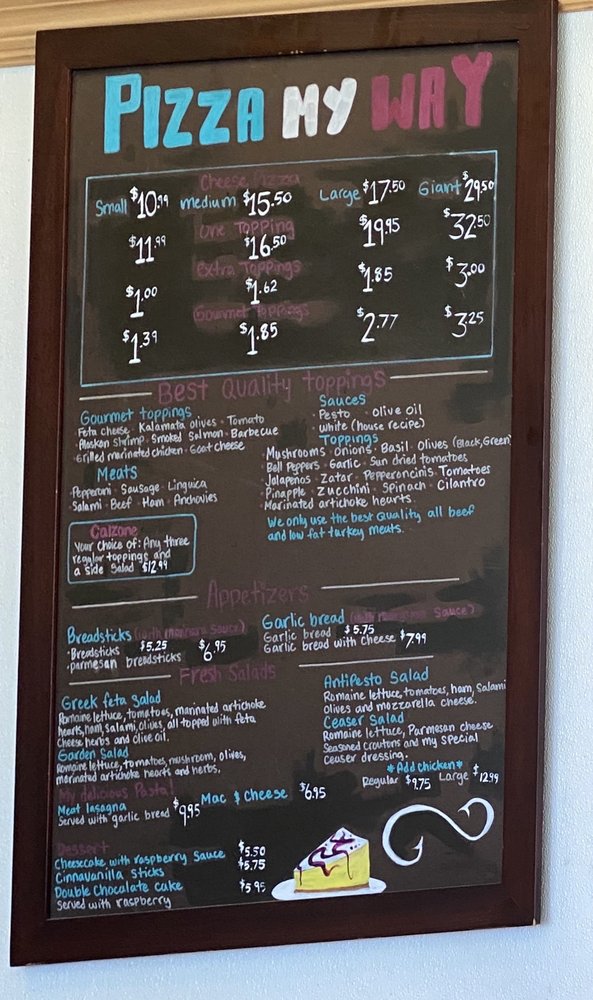 PIZZA MY WAY
Cheese Pizza
Small $10.99 medium $15.50 Large $17.50 Giant $29.50
One Topping
$11.99 $16.50 $19.95 $32.50
Extra Toppings
$1.00 $1.62 $1.85 $3.00
Gourmet Toppings
$1.39 $1.85 $2.77 $3.25
Best Quality Toppings
Gourmet toppings
Feta cheese · Kalamata olives · Tomato
·Alaskan Shrimp · Smoked Salmon · Barbecue
·Grilled marinated chicken · Goat cheese
Meats
·Pepperoni · Sausage · Linguica
·Salami · Beef · Ham · Anchovies
Sauces
·Pesto · olive oil
·White (house recipe)
Toppings
Mushrooms · Onions · Basil · Olives (Black, Green)
·Bell Peppers · Garlic · Sun dried tomatoes
·Jalapenos · Zatar · Pepperoncinis · Tomatoes
·Pinapple · Zucchini · Spinach · Cilantro
·Marinated artichoke hearts
We only use the best quality all beef
and low fat turkey meats.
Calzone
Your choice of: Any three
regular toppings and
a side Salad $12.99
Appetizers
Breadsticks (with marinara Sauce)
·Breadsticks $5.25
·parmesan breadsticks $6.95
Garlic bread (with marinara Sauce)
Garlic bread $5.75
Garlic bread with Cheese $7.99
Fresh Salads
Greek feta Salad
Romaine lettuce, tomatoes, marinated artichoke
hearts, ham, salami, olives, all topped with feta
Cheese, herbs and olive oil.
Garden Salad
Romaine lettuce, tomatoes, mushroom, olives,
marinated artichoke hearts and herbs.
AntiPesto Salad
Romaine lettuce, tomatoes, ham, Salami
Olives and mozzarella cheese.
Ceaser Salad
Romaine lettuce, Parmesan cheese
Seasoned croutons and my special
Ceaser dressing.
*Add chicken*
Regular $9.75 Large $12.99
My delicious Pasta!
Meat lasagna
Served with garlic bread $9.95
Mac & Cheese $6.95
Dessert
Cheesecake with raspberry Sauce $5.50
Cinnavanilla Sticks $5.75
Double Chocolate Cake $5.95
Served with raspberry